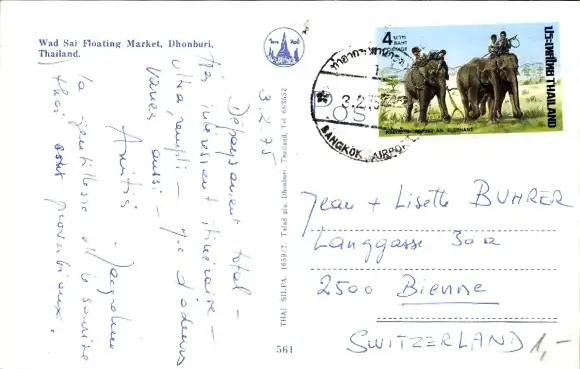 Wad Sai Floating Market, Dhonburi,
Thailand.
3.2.75
Dépaysement total -
très intéressant itinéraire -
ultra rempli - que d'odeurs
variées aussi -
Amitiés.
Jacqueline
la gentillesse et le sourire
thai sont proverbiaux.
THAI SILPA. 1659/7. Talad plu. Dhonburi. Thailand. Tel 663552
561
4 บาท
BAHT
ประเทศไทย THAILAND
3.2.75
BANGKOK AIRPORT
Jean + Lisette BUHRER
Langgasse 30a
2500 Bienne
SWITZERLAND
1,-